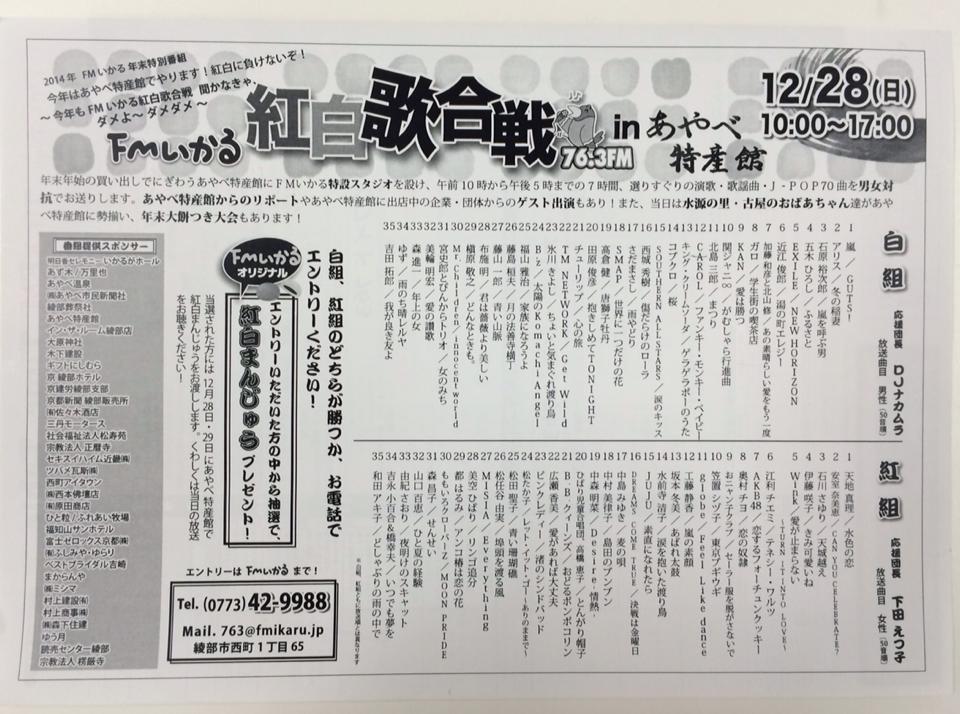 2014年 FMいかる 年末特別番組
今年はあやべ特産館でやります！紅白に負けないぞ！
～今年もFMいかる紅白歌合戦 聞かなきゃ、
ダメよ～ダメダメ～
FMいかる
紅白歌合戦
76.3FM
in あやべ
特産館
12/28(日)
10:00～17:00
年末年始の買い出しでにぎわうあやべ特産館にFMいかる特設スタジオを設け、午前10時から午後5時までの7時間、選りすぐりの演歌・歌謡曲・J-POP70曲を男女対
抗でお送りします。あやべ特産館からのリポートやあやべ特産館に出店中の企業・団体からのゲスト出演もあり！また、当日は水源の里・古屋のおばあちゃん達があや
べ特産館に勢揃い、年末大餅つき大会もあります！
白組
応援団長 DJナカムラ
放送曲目 男性（50音順）
1 嵐／GUTS！
2 アリス／冬の稲妻
3 石原裕次郎／嵐を呼ぶ男
4 五木ひろし／ふるさと
5 EXILE／NEW HORIZON
6 近江俊郎／湯の町エレジー
7 加藤和彦と北山修／あの素晴らしい愛をもう一度
8 ガロ／学生街の喫茶店
9 KAN／愛は勝つ
10 関ジャニ∞／がむしゃら行進曲
11 北島三郎／まつり
12 CAROL／ファンキー・モンキー・ベイビー
13 キング・クリームソーダ／ゲラゲラポーのうた
14 コブクロ／桜
15 SOUTHERN ALL STARS／涙のキッス
16 西城秀樹／傷だらけのローラ
17 さだまさし／雨やどり
18 SMAP／世界に一つだけの花
19 高倉健／唐獅子牡丹
20 田原俊彦／抱きしめてTONIGHT
21 チューリップ／心の旅
22 TM NETWORK／Get Wild
23 氷川きよし／ちょいときまぐれ渡り鳥
24 B'z／太陽のKomachi Angel
25 福山雅治／家族になろうよ
26 藤島桓夫／月の法善寺横丁
27 藤山一郎／青い山脈
28 布施明／君は薔薇より美しい
29 槇原敬之／どんなときも。
30 Mr.Children／innocent world
31 宮史郎とぴんからトリオ／女のみち
32 美輪明宏／愛の讃歌
33 森進一／年上の女
34 ゆず／雨のち晴レルヤ
35 吉田拓郎／我が良き友よ
紅組
応援団長 下田えつ子
放送曲目 女性（50音順）
1 天地真理／水色の恋
2 安室奈美恵／CAN YOU CELEBRATE?
3 石川さゆり／天城越え
4 伊藤咲子／きみ可愛いね
5 Wink／愛が止まらない
～TURN IT INTO LOVE～
6 江利チエミ／テネシー・ワルツ
7 AKB48／恋するフォーチュンクッキー
8 奥村チヨ／恋の奴隷
9 おニャン子クラブ／セーラー服を脱がさないで
10 笠置シヅ子／東京ブギウギ
11 globe／Feel Like dance
12 工藤静香／嵐の素顔
13 坂本冬美／あばれ太鼓
14 水前寺清子／涙を抱いた渡り鳥
15 JUJU／素直になれたら
16 DREAMS COME TRUE／決戦は金曜日
17 中島みゆき／麦の唄
18 中村美律子／島田のブンブン
19 中森明菜／Desire-情熱-
20 ひばり児童合唱団、高橋恵子／とんがり帽子
21 B.B.クィーンズ／おどるポンポコリン
22 広瀬香美／愛があれば大丈夫
23 ピンクレディー／渚のシンドバッド
24 松たか子／レット・イット・ゴー～ありのままで～
25 松田聖子／青い珊瑚礁
26 松任谷由実／埠頭を渡る風
27 MISIA／Everything
28 美空ひばり／リンゴ追分
29 都はるみ／アンコ椿は恋の花
30 ももいろクローバーZ／MOON PRIDE
31 森昌子／せんせい
32 山口百恵／ひと夏の経験
33 由紀さおり／夜明けのスキャット
34 吉永小百合&橋幸夫／いつでも夢を
35 和田アキ子／どしゃぶりの雨の中で
白組、紅組のどちらが勝つか、お電話で
エントリーください！
FMいかる
オリジナル
エントリーいただいた方の中から抽選で、
紅白まんじゅう
プレゼント！
当選された方には12月28日・29日にあやべ特産館で
紅白まんじゅうをお渡しします。くわしくは当日の放送
をお聴きください！
エントリーは FMいかる まで！
Tel. (0773) 42-9988
Mail. 763@fmikaru.jp
綾部市西町1丁目65
番組提供スポンサー
明日香セレモニー いかるがホール
あず木／万里也
あやべ温泉
㈱あやべ市民新聞社
綾部葬祭社
あやべ特産館
イン・ザ・ルーム綾部店
大原神社
木下建設
ギフトにしむら
京綾部ホテル
京建労綾部支部
京都新聞 綾部販売所
㈲佐々木酒店
三丹モータース
社会福祉法人松寿苑
宗教法人 正暦寺
セキスイハイム近畿㈱
ツバメ瓦斯㈱
西町アイタウン
㈱西本佛壇店
㈲原田商店
ひと粒／ふれあい牧場
福知山サンホテル
富士ゼロックス京都㈱
㈲ふしみや・ゆらり
ベストブライダル吉崎
まからんや
㈱ミシマ
村上建設㈲
村上商事㈱
㈱森下住建
ゆう月
読売センター綾部
宗教法人 楞厳寺